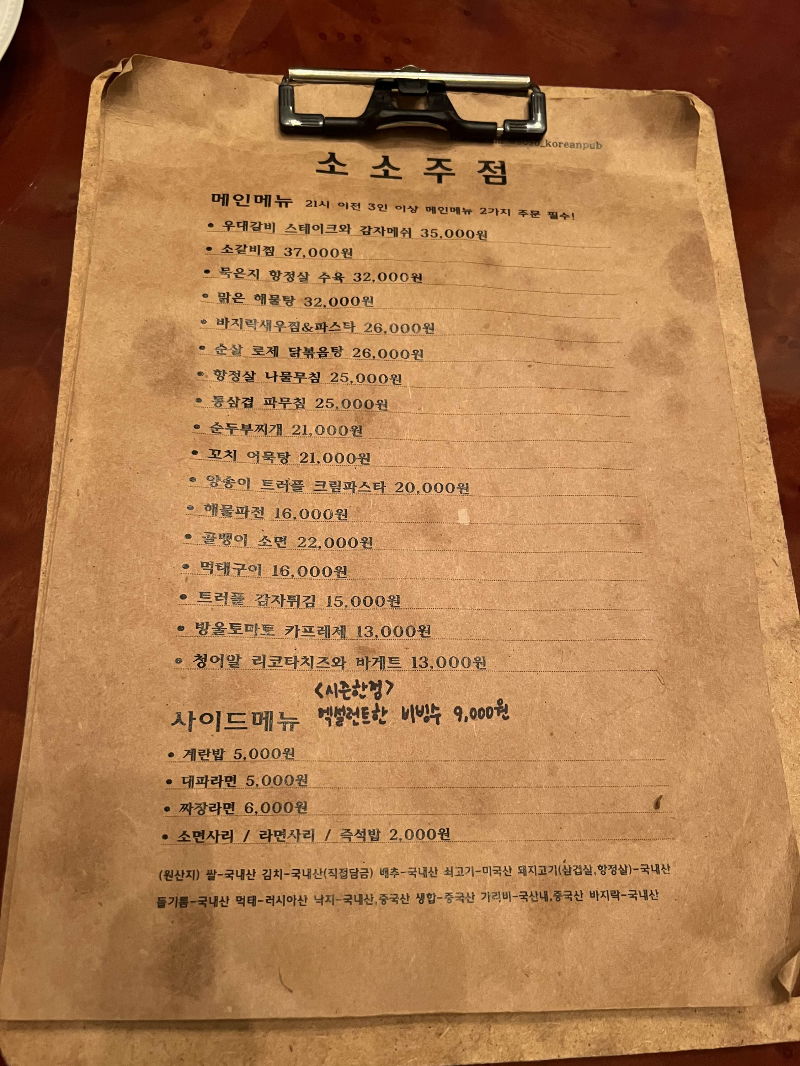 _koreanpub
소소주점
메인메뉴 21시 이전 3인 이상 메인메뉴 2가지 주문 필수!
• 우대갈비 스테이크와 감자메쉬 35,000원
• 소갈비찜 37,000원
• 묵은지 항정살 수육 32,000원
• 맑은 해물탕 32,000원
• 바지락새우찜&파스타 26,000원
• 순살 로제 닭볶음탕 26,000원
• 항정살 나물무침 25,000원
• 통삼겹 파무침 25,000원
• 순두부찌개 21,000원
• 꼬치 어묵탕 21,000원
• 양송이 트러플 크림파스타 20,000원
• 해물파전 16,000원
• 골뱅이 소면 22,000원
• 먹태구이 16,000원
• 트러플 감자튀김 15,000원
• 방울토마토 카프레제 13,000원
• 청어알 리코타치즈와 바게트 13,000원
<시즌한정>
엑설런트한 비빙수 9,000원
사이드메뉴
• 계란밥 5,000원
• 대파라면 5,000원
• 짜장라면 6,000원
• 소면사리 / 라면사리 / 즉석밥 2,000원
(원산지) 쌀-국내산 김치-국내산(직접담금) 배추-국내산 쇠고기-미국산 돼지고기(삼겹살,항정살)-국내산
들기름-국내산 먹태-러시아산 낙지-국내산,중국산 생합-중국산 가리비-국산내,중국산 바지락-국내산